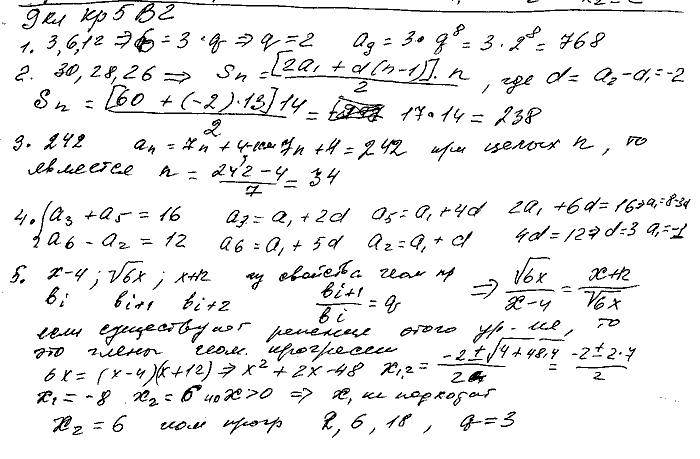 9 кл Кр 5 В2
1. 3, 6, 12 ⇒ 6 = 3 · q ⇒ q = 2 a₉ = 3 · q⁸ = 3 · 2⁸ = 768
2. 30, 28, 26 ⇒ Sn = [2a₁ + d(n-1)] · n / 2, где d = a₂ - a₁ = -2
Sn = [60 + (-2) · 13] 14 / 2 = 17 · 14 = 238
3. 242 an = 7n + 4 7n + 4 = 242 при целых n, то
является n = (242 - 4) / 7 = 34
4. { a₃ + a₅ = 16 a₃ = a₁ + 2d a₅ = a₁ + 4d 2a₁ + 6d = 16 ⇒ a₁ = 8 - 3d
a₆ - a₂ = 12 a₆ = a₁ + 5d a₂ = a₁ + d 4d = 12 ⇒ d = 3 a₁ = -1
5. x-4; √6x; x+12 из свойства геом пр ⇒ √6x / (x-4) = (x+12) / √6x
bi bi+1 bi+2 bi+1 / bi = q
если существует решение этого ур-ия, то
это члены геом. прогрессии
6x = (x-4)(x+12) ⇒ x² + 2x - 48 x₁,₂ = (-2 ± √4 + 48·4) / 2 = (-2 ± 2 · 7) / 2
x₁ = -8 x₂ = 6 но x > 0 ⇒ x₁ не подходит
x₂ = 6 геом прогр 2, 6, 18, q = 3